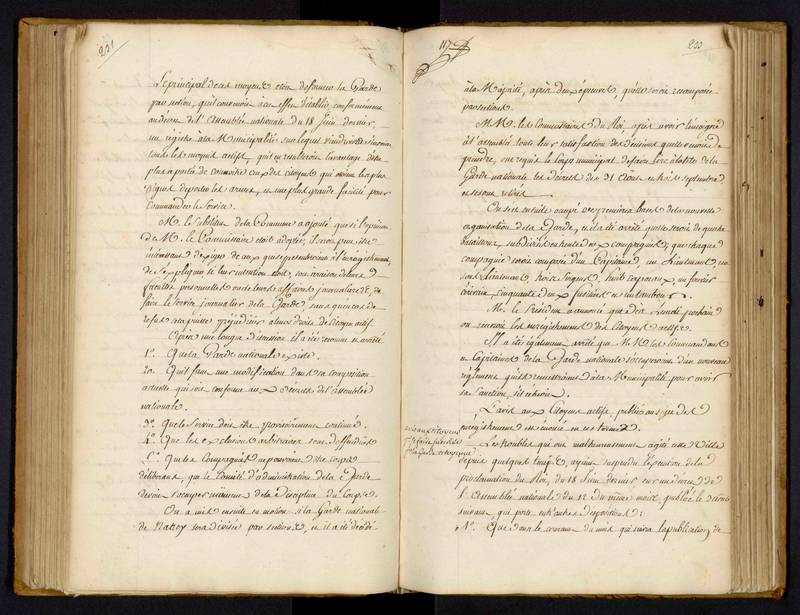 221
Le principal de ces moyens est de former la Garde
par section, qu'il convenoit à cet effet d'établir, conformément
au decret de l'assemblée nationale du 18 Juin dernier,
un registre à la Municipalité sur lequel s'inscriroient
tous les moyens actifs, qu'il en resulteroit l'avantage
à portée de connoitre ceux des citoyens qui
dignes de porter les armes, et une plus grande facilité pour
Commander le Service.
M. le Substitut de la Commune a ajouté que si l'opinion
de M. le Commissaire etoit adoptée, il seroit peut être
interessant d'exiger de ceux qui se presenteroient à l'enregistrement
de s'expliquer si leur intention etoit,
facultés personnelles ou de leurs affaires journalieres, de
faire le Service journalier de la Garde, sans que
refus put préjudicier à leurs droits de Citoyen actif.
Après une longue discussion il a été reconnu et arrêté
1º. Que la Garde nationale existe.
2º. Qu'il faut une modification dans sa composition
actuelle qui soit conforme aux Décrets de l'assemblée
nationale.
3º. Que le Service doit être provisoirement continué.
4º. Que les exclusions arbitraires sont deffendues
5º. Que les Compagnies ne pouvoient être corps
déliberans, que le Comité d'administration de la Garde
devoit s'occuper uniquement de la discipline du Corps.
On a mis ensuite en motion si la Garde nationale
de Nancy sera divisée par sections, et il a été décidé
117
223
à la Majorité, après deux épreuves, qu'elle seroit recomposée
par sections.
MM. les Commissaires du Roi, après avoir temoigné
à l'assemblée toute leur satisfaction des décisions qu'elle venoit de
prendre, ont requis le Corps municipal de faire lire à la tête de la
Garde nationale les Décrets des 31 Août et trois septembre
et se sont retirés
On s'est ensuite occupé des premieres bases de la nouvelle
organisation de la Garde, et il a été arrêté qu'elle seroit de quatre
bataillons, subdivisés en trente deux compagnies; que chaque
compagnie seroit composée d'un Capitaine, un Lieutenant, un
sous Lieutenant, trois Sergens, huit caporaux, un fourier
écrivain, cinquante deux fusiliers et un tambour.
M. le Président a annoncé que dès Lundi prochain
on recevroit les enregistremens des Citoyens actifs.
Il a été également arrêté que MM. les Commandans
et Capitaines de la Garde nationale s'occuperoient d'un nouveau
réglement qu'ils remettroient à la Municipalité pour avoir
sa Sanction, s'il échéoit.
L'avis aux Citoyens actifs, publié au sujet des
enrégistremens est énoncé en ces termes.
avis aux citoyens
de faire
la Garde citoyenne
Les troubles qui ont malheureusement agité cette Ville
depuis quelque temps, ayant suspendu l'execution de la
proclamation du Roi, du 18 Juin dernier, sur un decret de
l'assemblée nationale du 12 du même mois, publié le
suivant, qui porte entr'autres dispositions:
1º. Que dans le courant du mois qui suivra la publication de